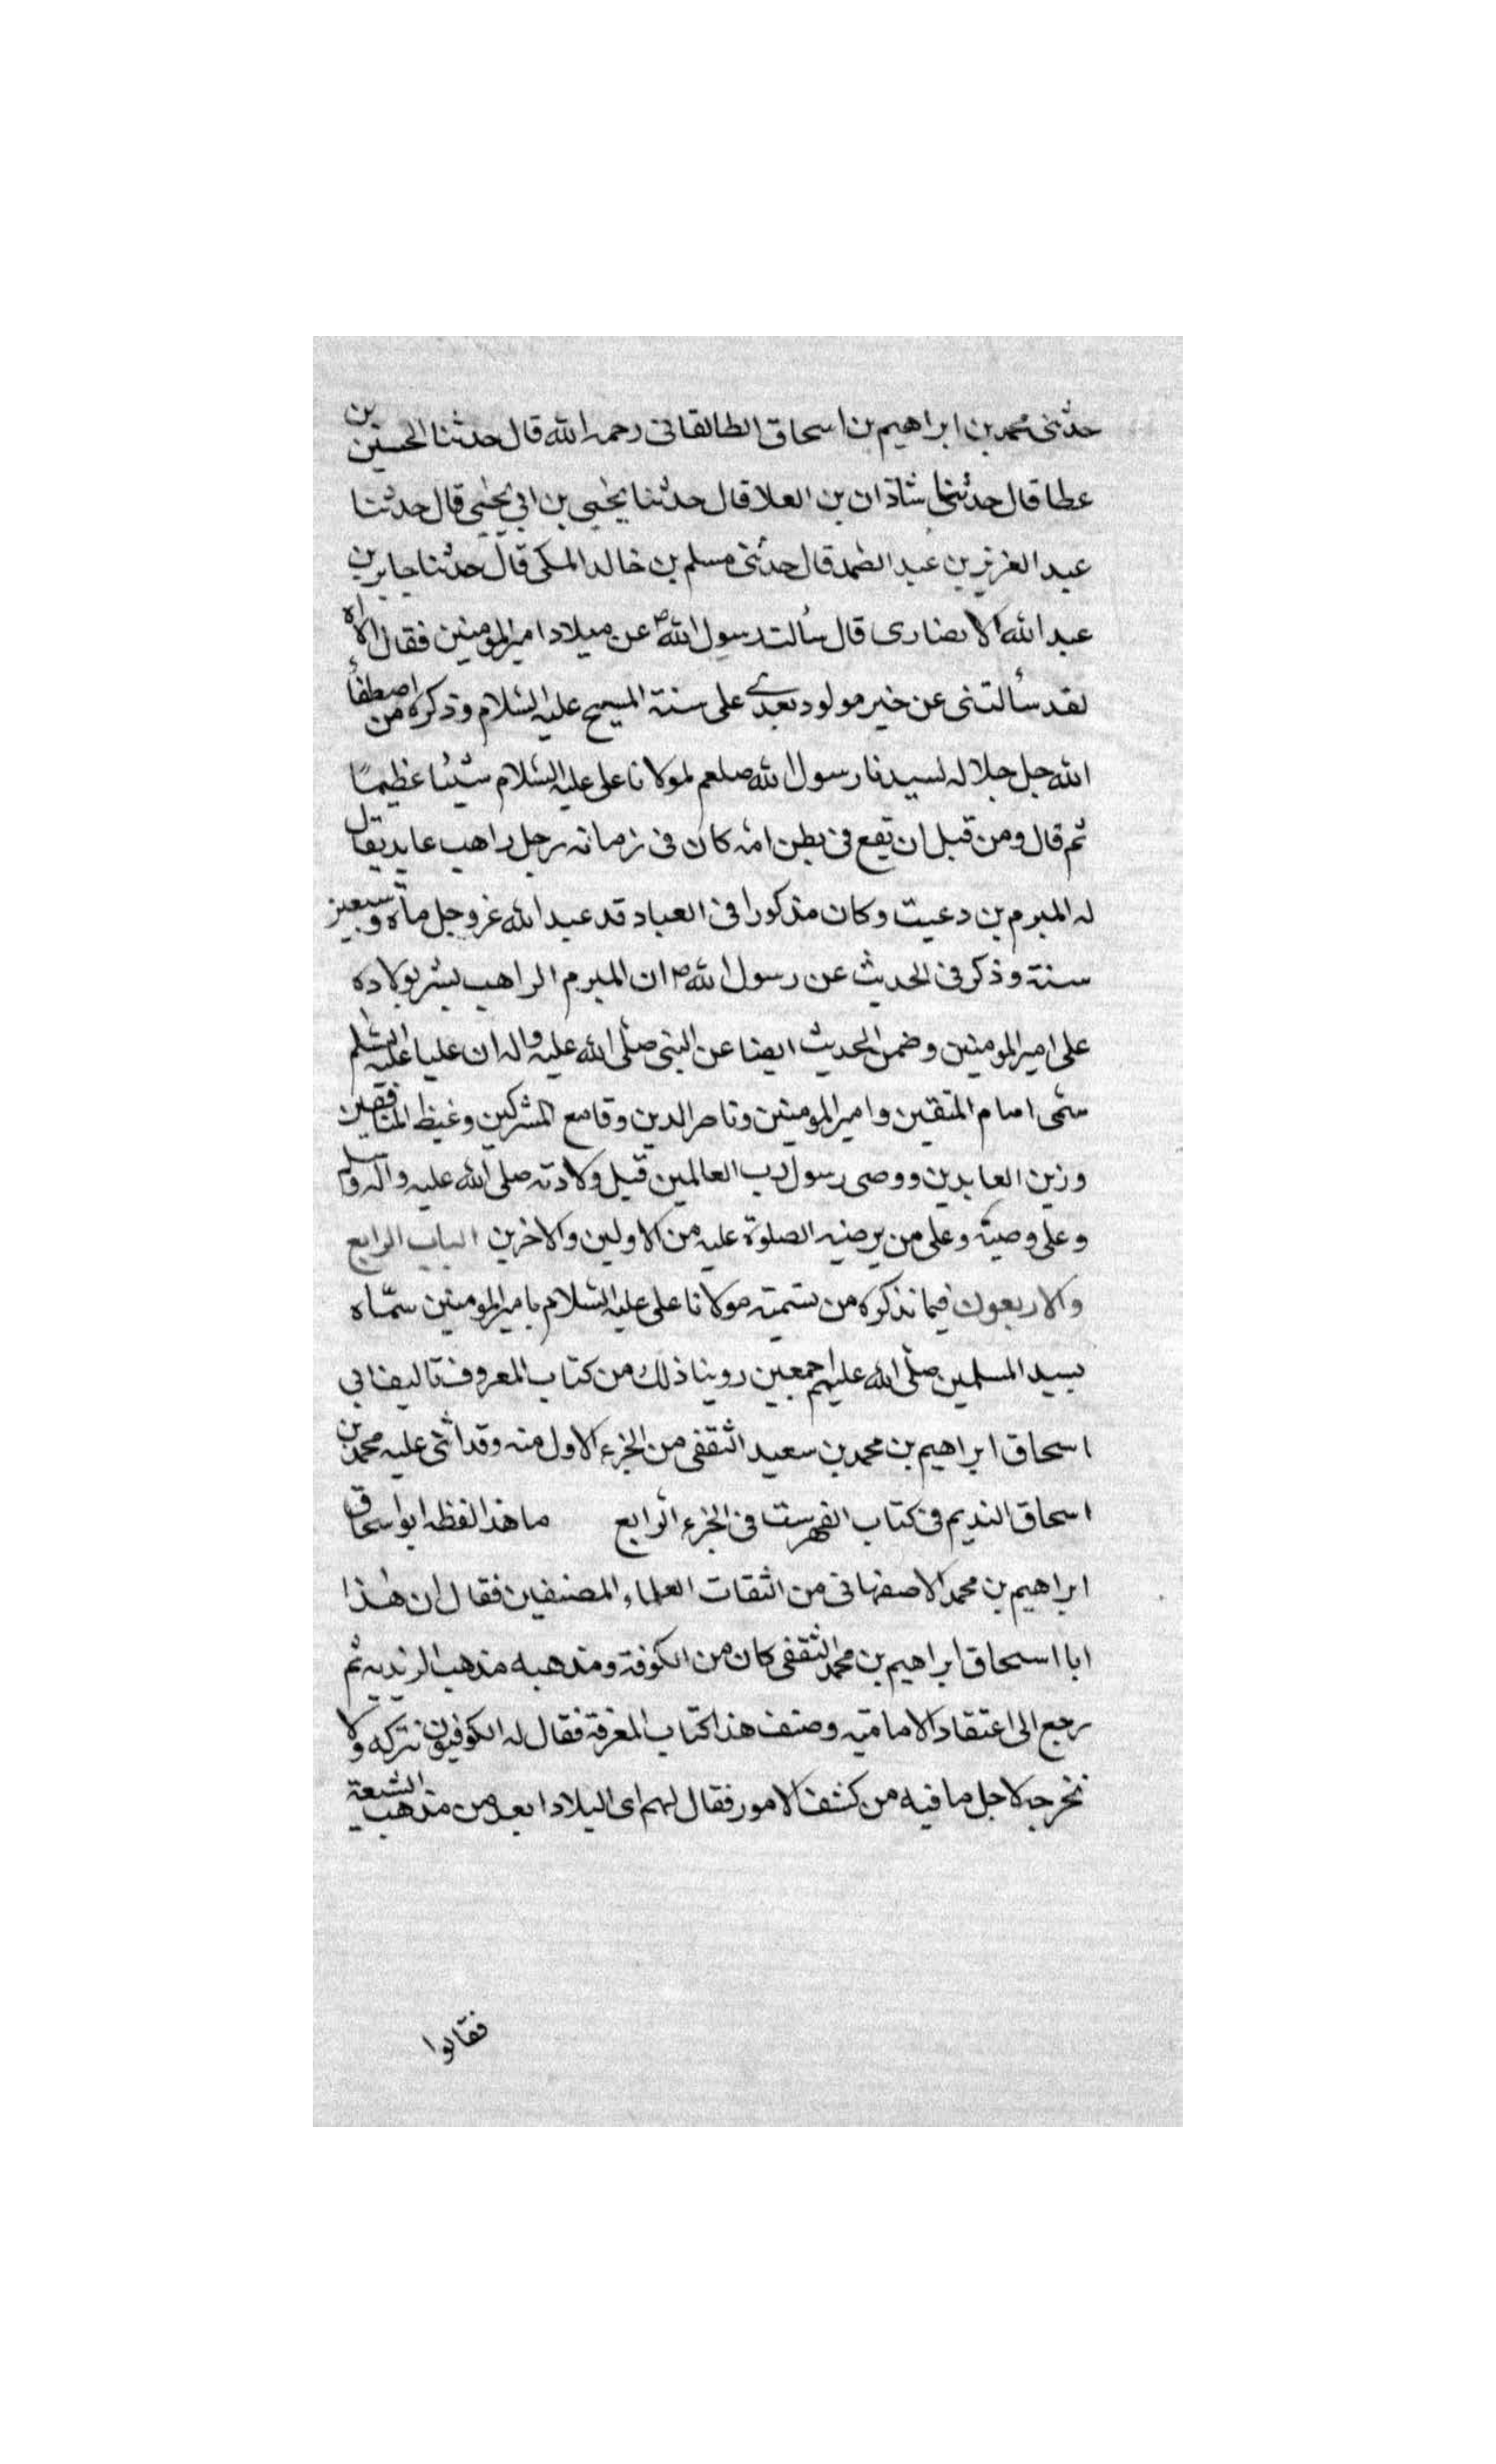 حدثنى محمد بن ابراهيم بن اسحاق الطالقانى رحمه الله قال حدثنا الحسين بن
عطا قال حدثنا شاذان بن العلا قال حدثنا يحيى بن ابى يحيى قال حدثنا
عبد العزيز بن عبد الصمد قال حدثنى مسلم بن خالد المكى قال حدثنا جابر بن
عبد الله الانصارى قال سألت رسول الله ص عن ميلاد امير المومنين فقال اه اه
لقد سألتنى عن خير مولود بعدى على سنة المسيح عليه السلام وذكر من اصطفأ
الله جل جلاله لسيدنا رسول الله صلعم لمولانا على عليه السلام شيئا عظيمًا
ثم قال ومن قبل ان يقع فى بطن امه كان فى زمانه رجل راهب عابد يقال
له المبرم بن دعيت وكان مذكورا فى العباد قد عبد الله عز وجل ماة وتسعين
سنة وذكر فى الحديث عن رسول الله ص ان المبرم الراهب بشر بولاده
على امير المومنين وضمن الحديث ايضا عن النبى صلى الله عليه واله ان عليا عليه السلم
سمى امام المتقين وامير المومنين وناصر الدين وقامع المشركين وغيظ المنافقين
وزين العابدين ووصى رسول رب العالمين قبل ولادته صلى الله عليه واله وسلم
وعلى وصيته وعلى من يرضيه الصلوة عليه من الاولين والاخرين الباب الرابع
والاربعون فيما نذكره من تسمية مولانا على عليه السلام بامير المومنين سمّاه
بسيد المسلمين صلى الله عليهم اجمعين روينا ذلك من كتاب المعروف تاليف ابى
اسحاق ابراهيم بن محمد بن سعيد الثقفى من الجزء الاول منه وقد اثنى عليه محمد بن
اسحاق النديم فى كتاب الفهرست فى الجزء الرابع ما هذا لفظه ابو اسحاق
ابراهيم بن محمد الاصفهانى من الثقات العلماء المصنفين فقال ان هذا
ابا اسحاق ابراهيم بن محمد الثقفى كان من الكوفة ومذهبه مذهب الزيديه ثم
رجع الى اعتقاد الاماميه وصنف هذا كتاب المعرفة فقال له الكوفيون نتركه ولا
نخرجه لاجل ما فيه من كشف الامور فقال لهم اى البلاد ابعد من مذهب الشيعة
فقالوا